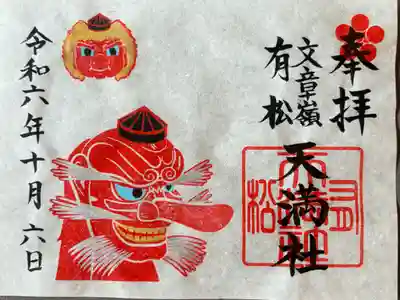 奉拝
文章嶺
有松
天満社
令和六年十月六日